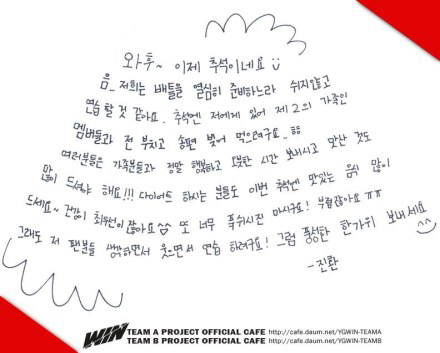 와후~ 이제 추석이네요
음_ 저희는 배틀을 열심히 준비하느라 쉬지않고
연습 할 것 같아요. 추석엔 저에게 있어 제 2의 가족인
멤버들과 전 부치고 송편 빚어 먹으려구요_ㅎㅎ
여러분들은 가족분들과 정말 행복하고 오붓한 시간 보내시고 맛난 것도
많이 드셔야 해요!!! 다이어트 하시는 분들도 이번 추석에 맛있는 음식 많이
드세요~ 건강이 최우선이잖아요 또 너무 푹쉬시진 마시구요! 부럽잖아요 ㅠㅠ
그래도 저 팬분들 생각하면서 웃으면서 연습 하려구요! 그럼 풍성한 한가위 보내세요 ^^
-진환
WIN TEAM A PROJECT OFFICIAL CAFE http://cafe.daum.net/YGWIN-TEAMA
TEAM B PROJECT OFFICIAL CAFE http://cafe.daum.net/YGWIN-TEAMB